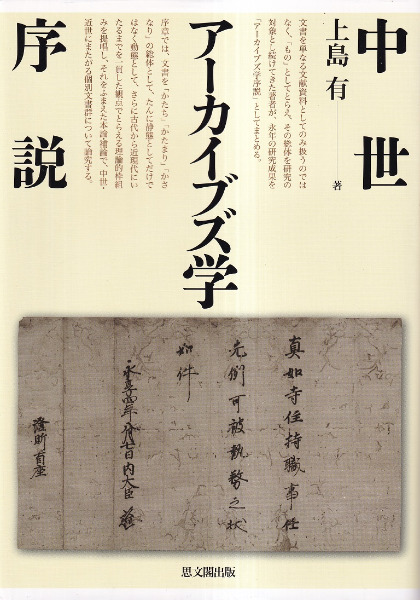 中世
アーカイブズ学
序説
上島有
著
文書を単なる文献資料としてのみ扱うのでは
なく、「もの」としてとらえ、その総体を研究の
対象とし続けてきた著者が、永年の研究成果を
「アーカイブズ学序説」としてまとめる。
序章では、文書を「かたち」「かたまり」「かさ
なり」の総体として、たんに静態としてだけで
はなく動態として、さらに古代から近現代にい
たるまでを一貫した観点でとらえる理論的枠組
みを提唱し、それをふまえた本論・補論で、中世・
近世にまたがる個別文書群について論究する。
真如寺住持職事任
先例可被執務之状
如件
永享四年八月廿日内大臣
蔭町首座
思文閣出版